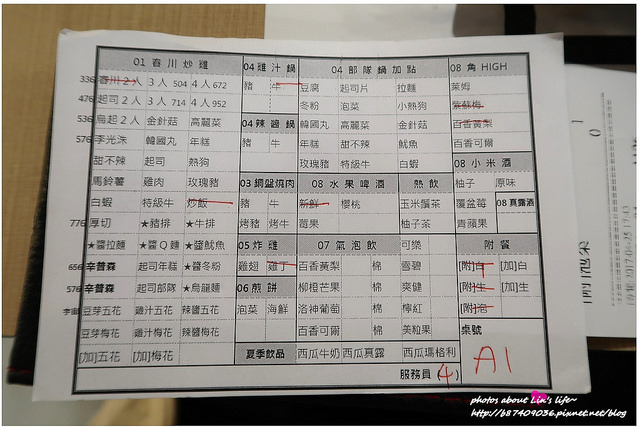 01 春川炒雞 04 雞汁鍋 04 部隊鍋加點 08 角HIGH
336 春川2人 3人504 4人672 豬 牛 豆腐 起司片 拉麵 萊姆
476 起司2人 3人714 4人952 冬粉 泡菜 小熱狗 紫蘇梅
536 烏起2人 金針菇 高麗菜 04 辣醬鍋 韓國丸 高麗菜 金針菇 百香黃梨
576 李光洙 韓國丸 年糕 豬 牛 年糕 甜不辣 魷魚 百香可爾
甜不辣 起司 熱狗 玫瑰豬 特級牛 白蝦 08 小米酒
馬鈴薯 雞肉 玫瑰豬 03 銅盤燒肉 08 水果啤酒 熱飲 柚子 原味
白蝦 特級牛 炒飯 豬 牛 新鮮 櫻桃 玉米鬚茶 覆盆莓 08 真露酒
776 厚切 ★豬排 ★牛排 烤豬 烤牛 莓果 柚子茶 青蘋果
★醬拉麵 ★醬Q麵 ★醬魷魚 05 炸雞 07 氣泡飲 可樂 附餐
656 辛普森 起司年糕 ★醬冬粉 雞翅 雞丁 百香黃梨 棉 雪碧 [附]白 [加]白
576 辛普森 起司部隊 ★烏龍麵 06 煎餅 柳橙芒果 棉 爽健 [附]生 [加]生
豆芽五花 雞汁五花 辣醬五花 泡菜 海鮮 洛神葡萄 棉 檸紅 [附]泡
豆芽梅花 雞汁梅花 辣醬梅花 百香可爾 棉 美粒果 桌號
[加]五花 [加]梅花 夏季飲品 西瓜牛奶 西瓜真露 西瓜瑪格利 A1
服務員(4)
photos about Lin's life~
http://b87409036.pixnet.net/blog